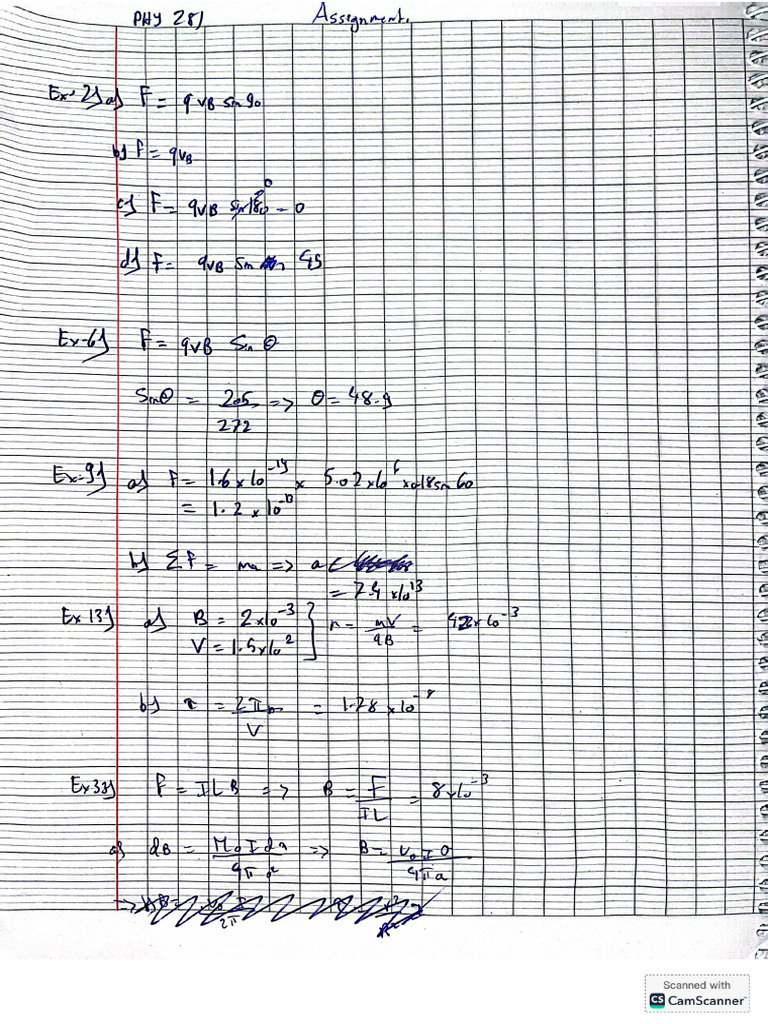 PHY 281 Assignment.
Ex. 2) a) F = qVB sin 90
b) F = qVB
c) F = qVB sin180 = 0
d) F = qVB sin 45
Ex-6) F = qVB Sin θ
Sinθ = 2.05 / 272 => θ = 48.9
Ex-9) a) F = 1.6 x 10^-19 x 5.02 x 10^6 x 0.18 sin 60
= 1.2 x 10^-13
b) ΣF = ma => a
= 7.4 x 10^13
Ex 13) a) B = 2x10^-3
V = 1.5x10^2 } r = mV / qB = x 10^-3
b) = 2πr / V = 1.28 x 10
Ex 38) F = ILB => B = F / IL = 8x10^-3
a) dB = => B =